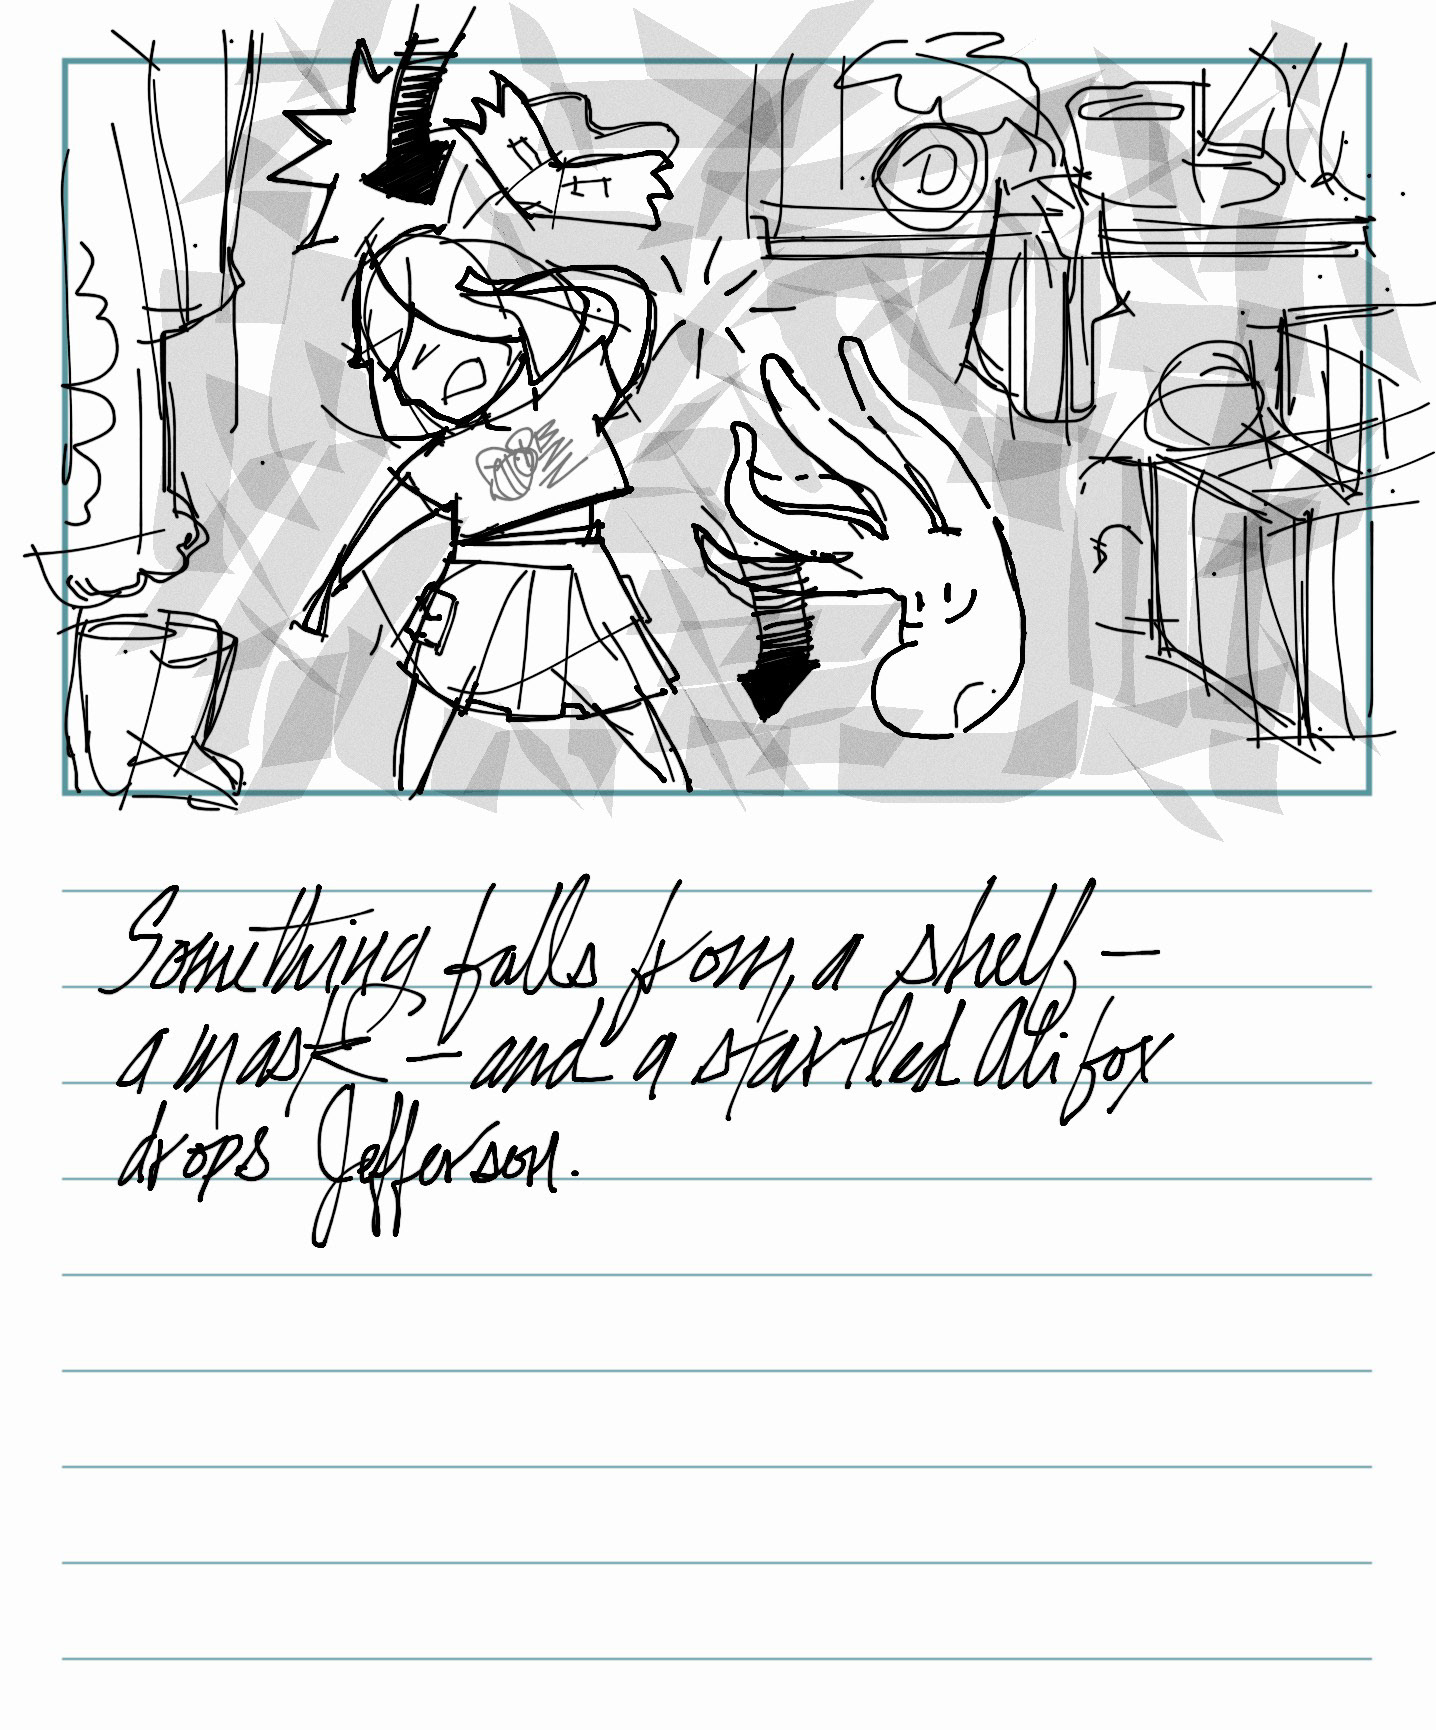 Something falls from a shelf —
a mask — and a startled Alifox
drops Jefferson.